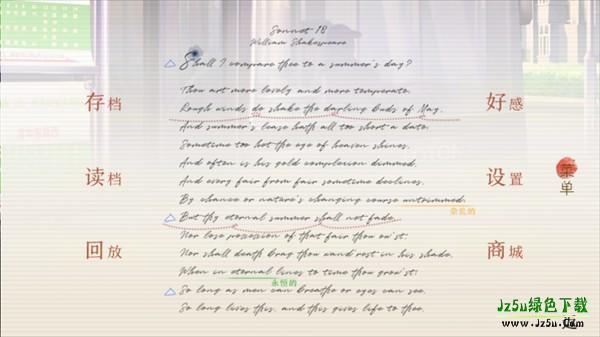 Sonnet 18
William Shakespeare
Shall I compare thee to a summer's day?
Thou art more lovely and more temperate.
Rough winds do shake the darling buds of May,
And summer's lease hath all too short a date.
Sometime too hot the eye of heaven shines,
And often is his gold complexion dimmed,
And every fair from fair sometime declines,
By chance or nature's changing course untrimmed.
杂乱的
But thy eternal summer shall not fade,
Nor lose possession of that fair thou ow'st:
Nor shall death brag thou wand'rest in his shade,
When in eternal lines to time thou grow'st:
永恒的
So long as men can breathe or eyes can see,
So long lives this, and this gives life to thee.
存档
读档
回放
好感
设置
商城
菜单
Jz5u绿色下载
www.Jz5u.Com